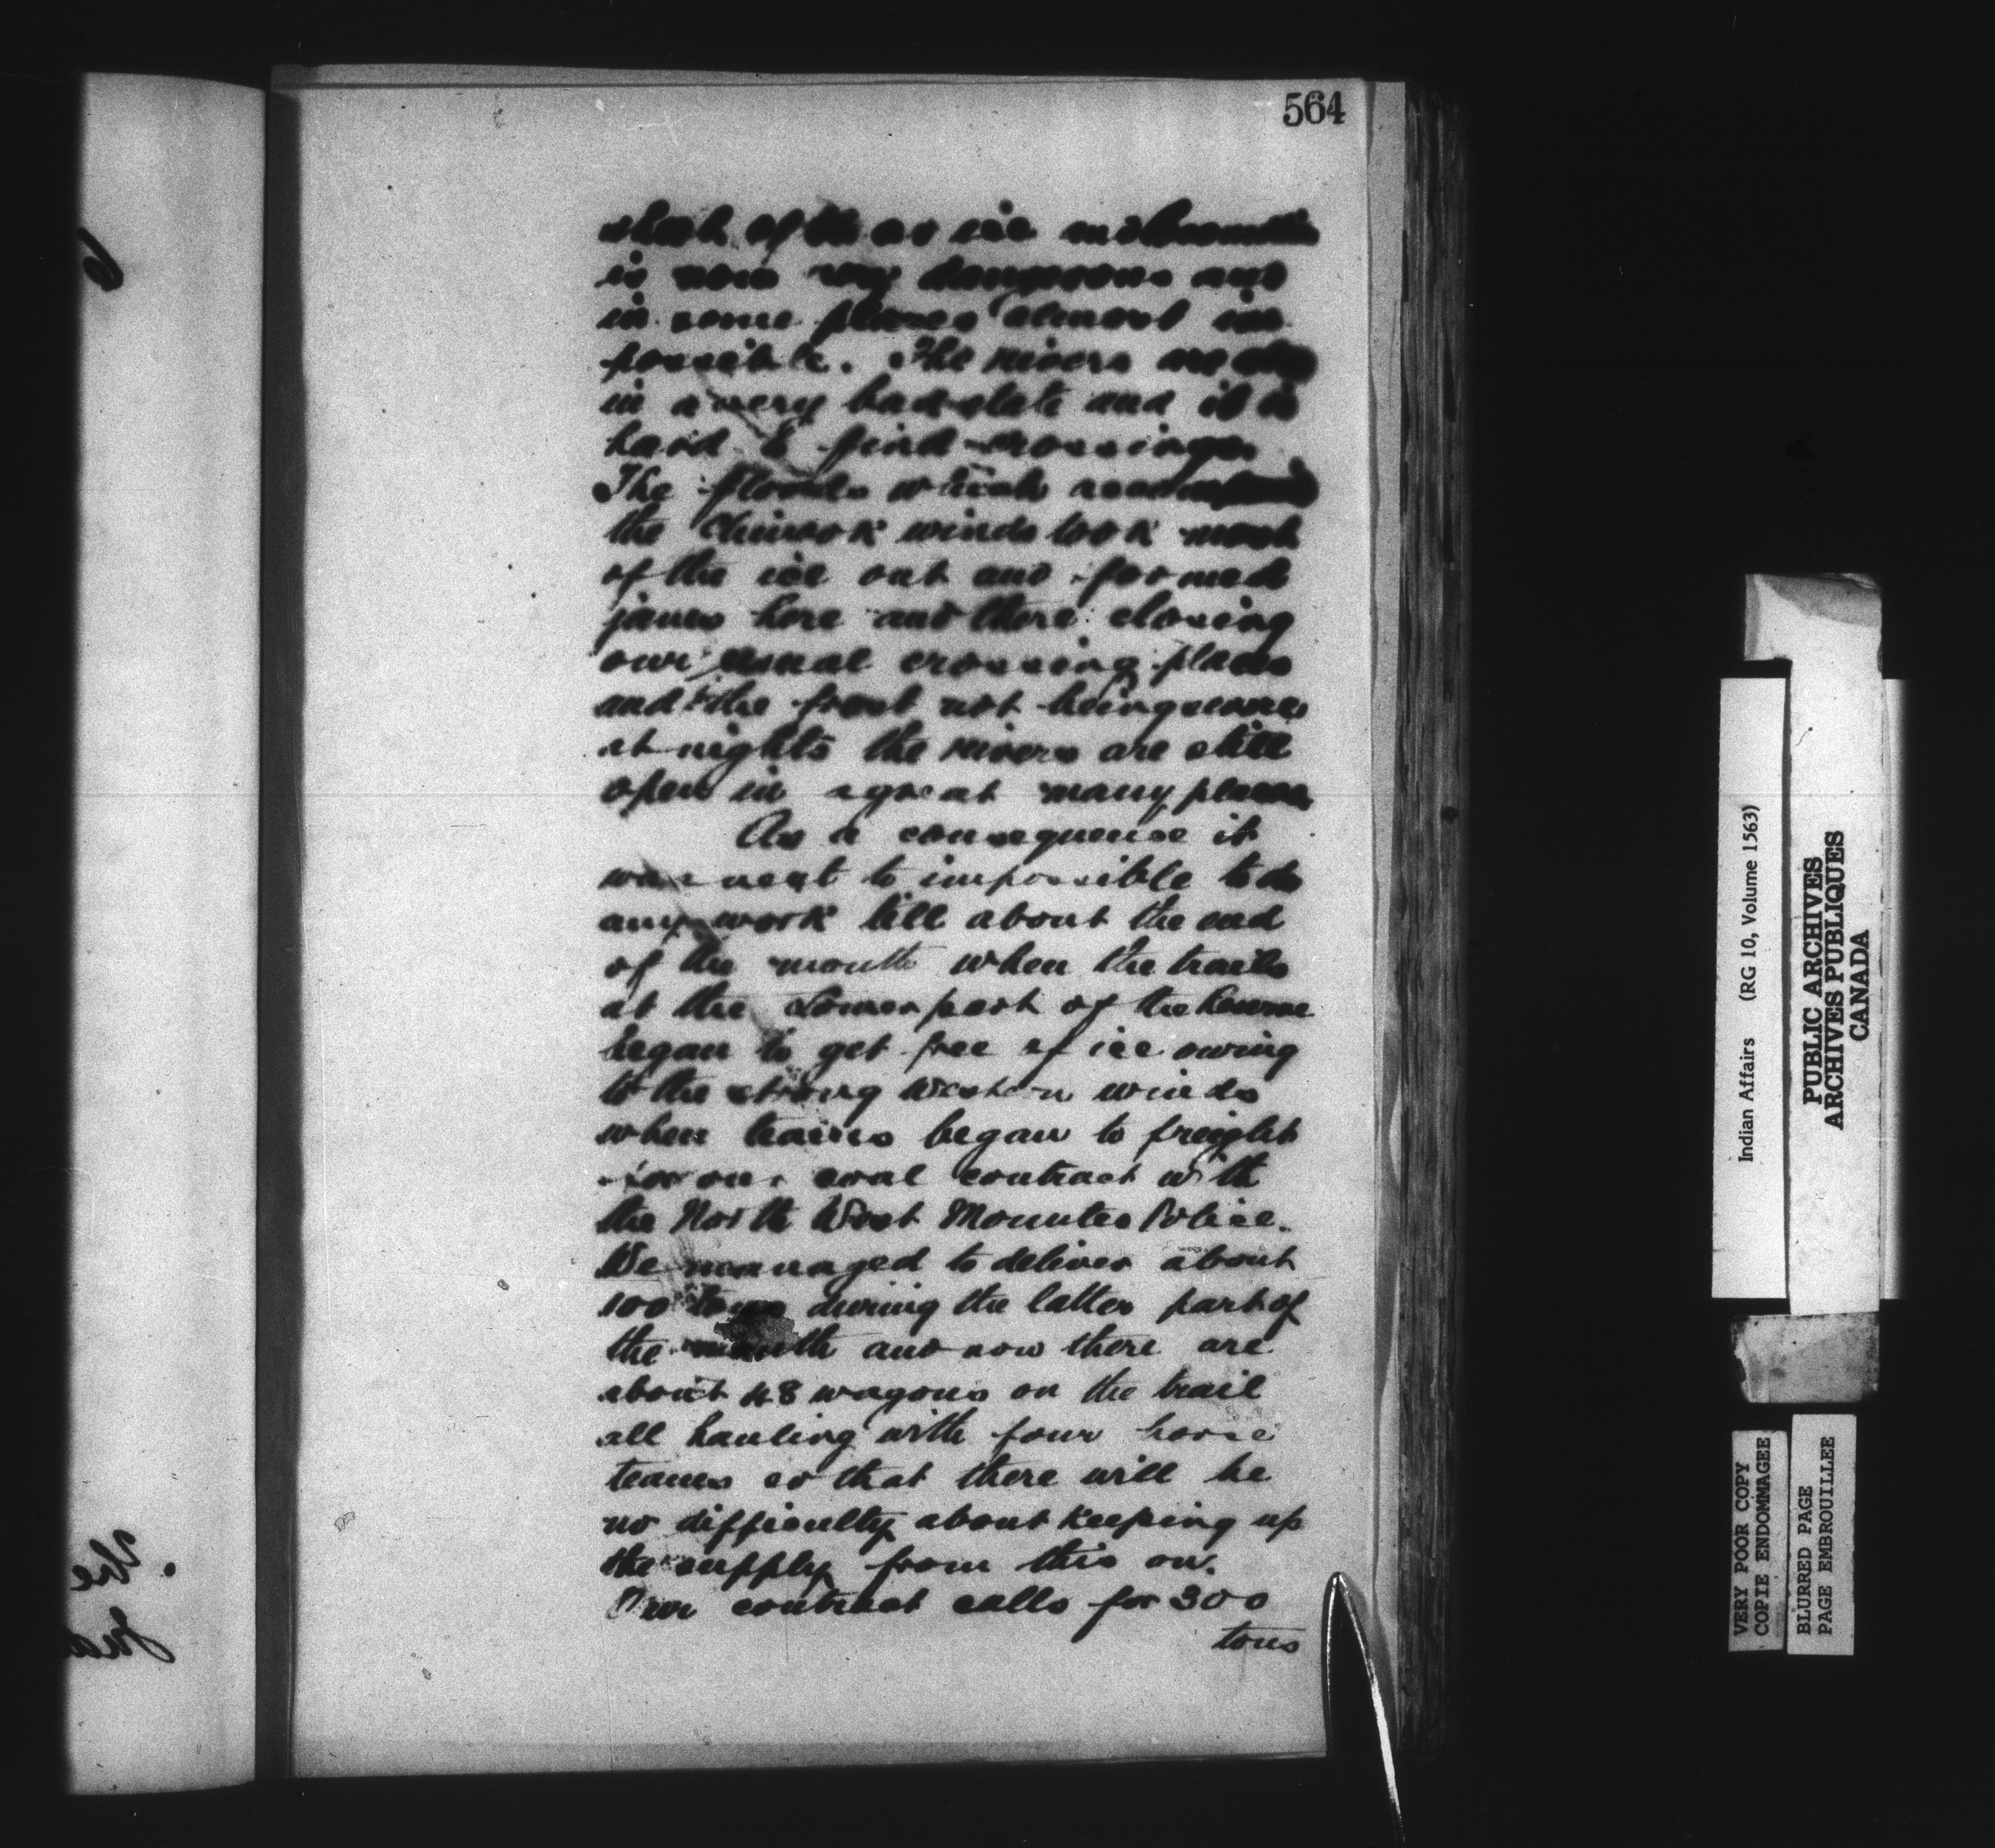 564
sheet of ice and
is now very dangerous and
in some places almost im
possible. The rivers are also
in a very bad state and it is
hard to find crossings.
The floods which
the Chinook winds took most
of the ice out and formed
jams here and there closing
our usual crossing places
and the frost not being severe
at nights the rivers are still
open in a great many places
As a consequence it
was next to impossible to do
any work till about the end
of the month when the trails
at the Lower part of the Reserve
began to get free of ice owing
to the strong Western winds
when teams began to freight
for our coal contract with
the North West Mounted Police.
We managed to deliver about
100 tons during the latter part of
the month and now there are
about 48 wagons on the trail
all hauling with four horse
teams so that there will be
no difficulty about keeping up
the supply from this on.
Our contract calls for 300
tons
Indian Affairs (RG 10, Volume 1563)
PUBLIC ARCHIVES
ARCHIVES PUBLIQUES
CANADA
VERY POOR COPY
COPIE ENDOMMAGEE
BLURRED PAGE
PAGE EMBROUILLEE